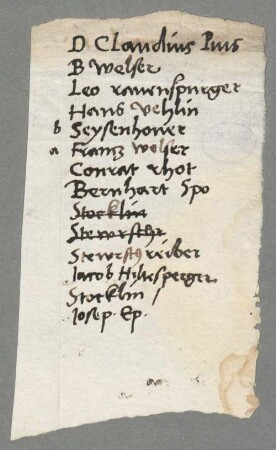 D Claudius Pius
B Welser
Leo rauenspurger
Hans Vehlin
b Seysenhouer
a Frantz Welser
Conrat rhot
Bernhart Spo
Stocklin
Stewrschr
Stewrschreiber
Jacob Hiltesperger
Stocklin /
Josep. Ep.